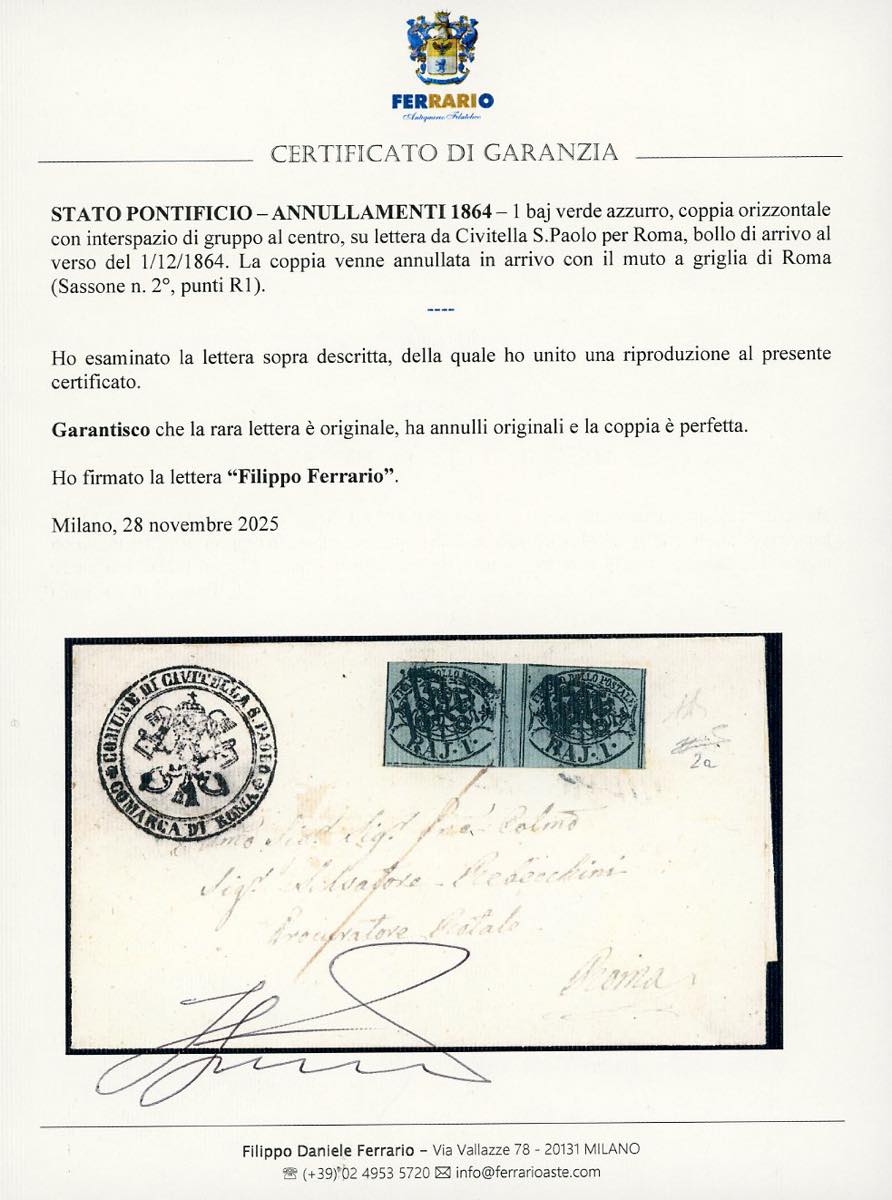 FERRARIO
Antiquario Filatelico
CERTIFICATO DI GARANZIA
STATO PONTIFICIO – ANNULLAMENTI 1864 – 1 baj verde azzurro, coppia orizzontale
con interspazio di gruppo al centro, su lettera da Civitella S.Paolo per Roma, bollo di arrivo al
verso del 1/12/1864. La coppia venne annullata in arrivo con il muto a griglia di Roma
(Sassone n. 2°, punti R1).
----
Ho esaminato la lettera sopra descritta, della quale ho unito una riproduzione al presente
certificato.
Garantisco che la rara lettera è originale, ha annulli originali e la coppia è perfetta.
Ho firmato la lettera “Filippo Ferrario”.
Milano, 28 novembre 2025
COMUNE DI CIVITELLA S. PAOLO
COMARCA DI ROMA
BAJ. 1.
BOLLO POSTALE
BAJ. 1.
2a
Sig.r Salvatore Rebecchini
Procuratore Rotale
Roma
Filippo Daniele Ferrario – Via Vallazze 78 - 20131 MILANO
☏ (+39) 02 4953 5720 ✉ info@ferrarioaste.com